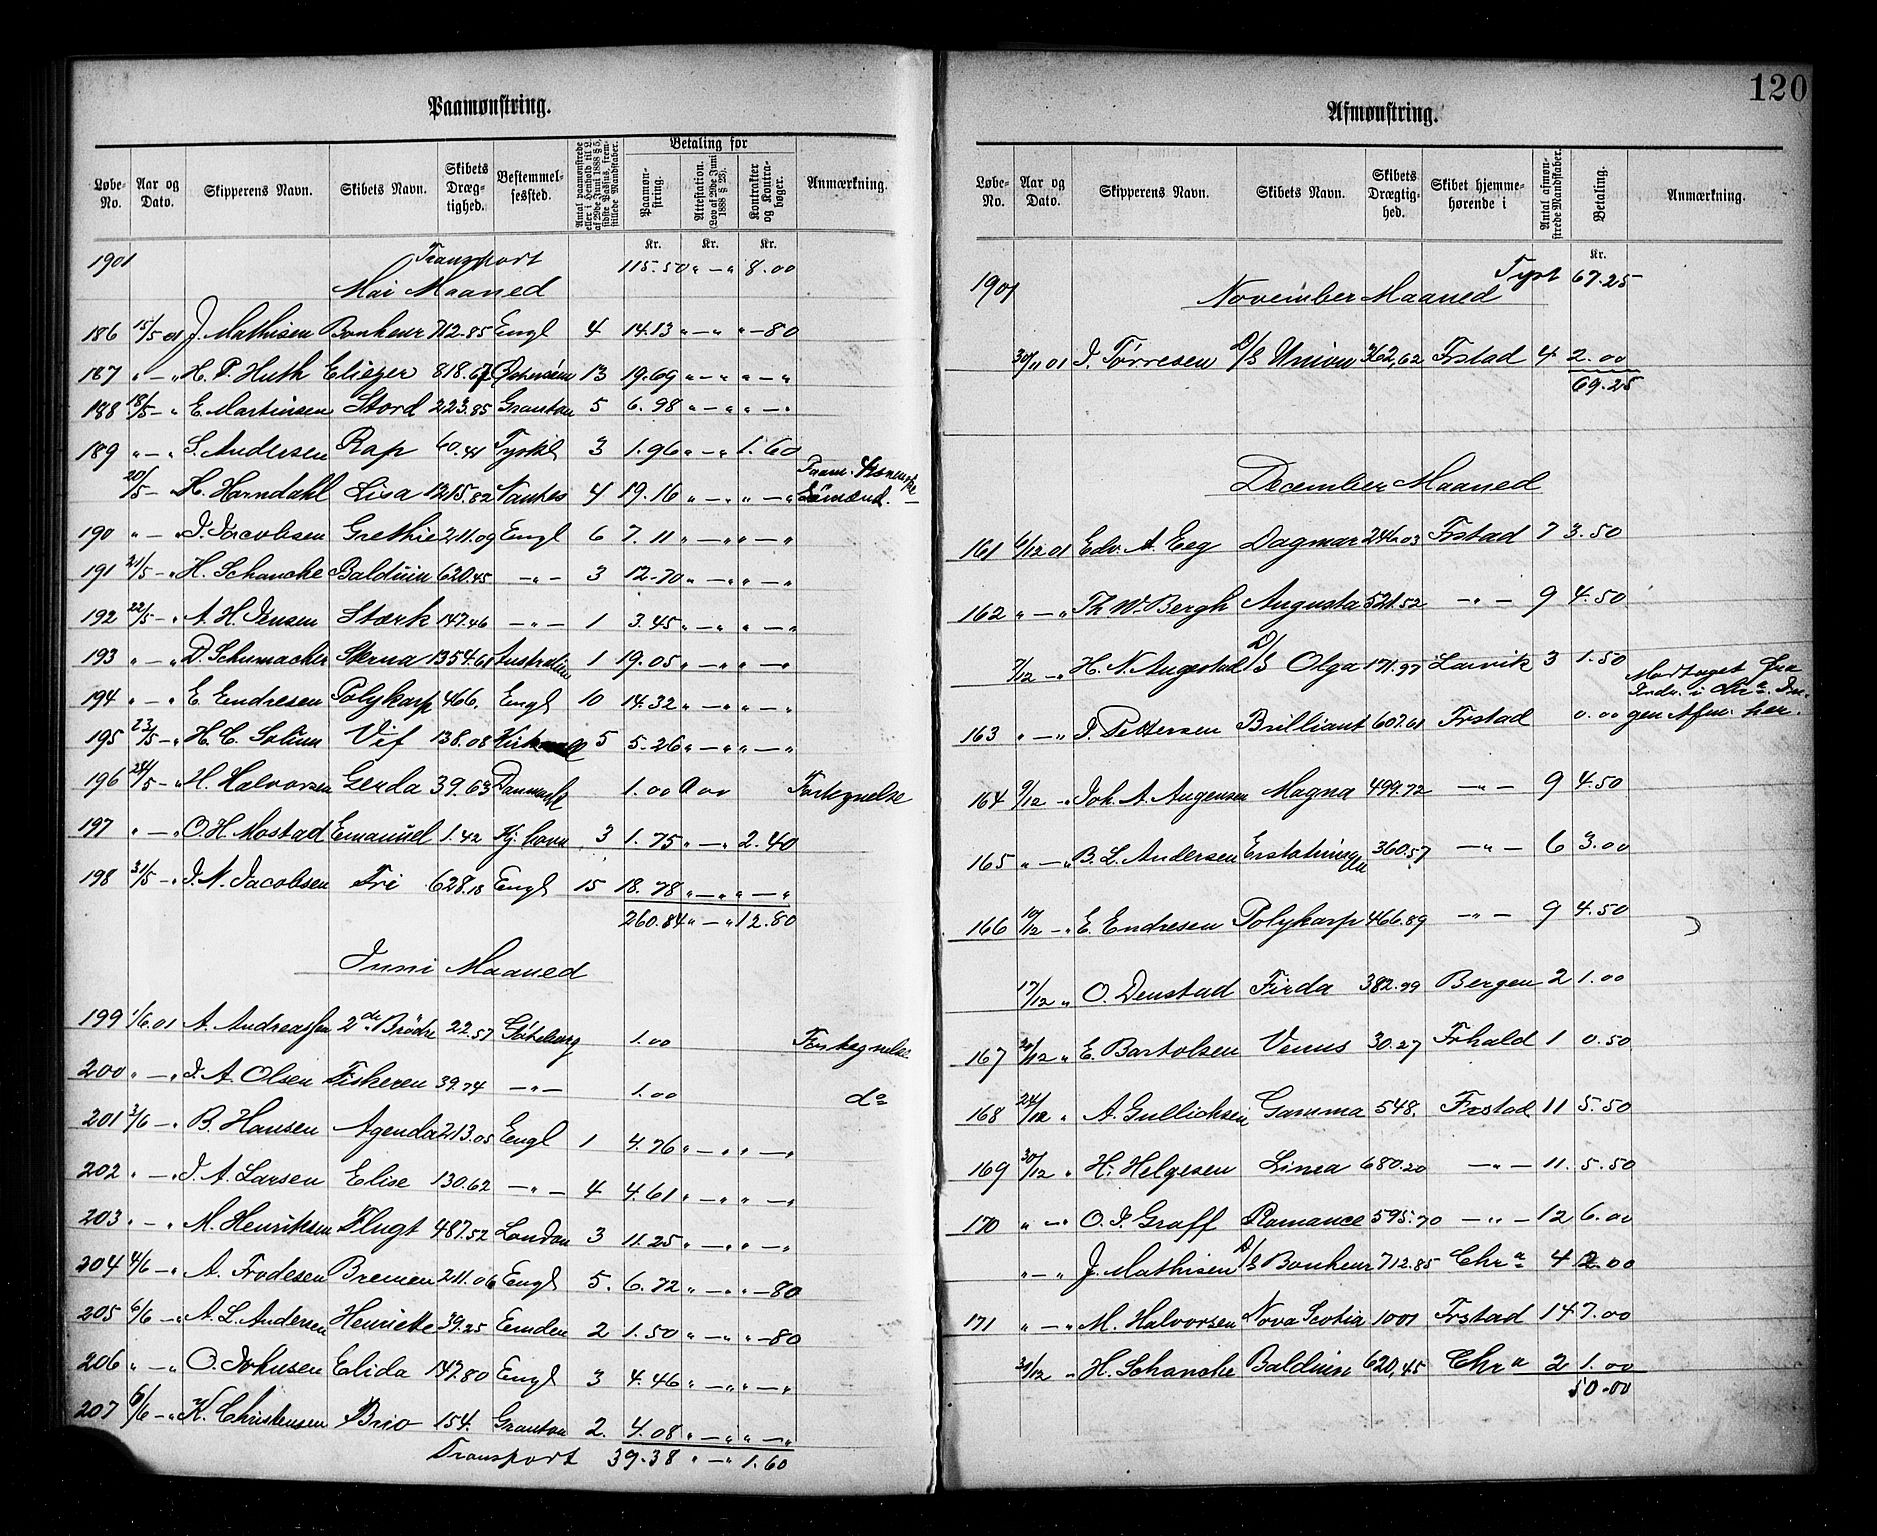 Paamønstring.
Løbe-No. Aar og Dato. Skipperens Navn. Skibets Navn. Skibets Dræg-tighed. Bestemmel-sessted. Betaling for Paamøn-string. Attestation. (Lov af 29de Juni 1888 § 23). Kontrakter og Kontra-bøger. Anmærkning.
Kr. Kr. Kr.
1901 Transport 115.50 " — " 8.00
Mai Maaned
186 15/5 01 J. Mathisen Bonheur 712.85 Engl 4 14.13 " — " " — 80
187 " — " H. P. Huth Eliezer 818.67 Østersöen 13 19.69 " — " " — "
188 18/5 — " E. Martinsen Stord 223.85 Granton 5 6.98 " — " " — "
189 " — " S. Andersen Rap 60.41 Tyskl 3 1.96 " — " 1.60
20/5 — " H. Horndahl Lisa 1215.82 Nantes 4 19.16 " — " " — " Paam. Sømænd.
190 " — " J. Jacobsen Grethie 211.09 Engl 6 7.11 " — " " — "
191 21/5 — " H. Schancke Balduin 620.45 — " — 3 12.70 " — " " — "
192 22/5 — " A. H. Jensen Stærk 147.46 — " — 1 3.45 " — " " — "
193 " — " D. Schumacher Sterna 1354.61 Australien 1 19.05 " — " " — "
194 " — " E. Endresen Polykarp 466. Engl 10 14.32 " — " " — "
195 23/5 — " H. C. Solum Vif 138.08 5 5.26 " — " " — "
196 24/5 — " M. Halvorsen Gerda 39.63 Danmark 1.00 0 00 Fortegnelse
197 " — " O. H. Mostad Emanuel 1.42 Kj. havn 3 1.75 " — " 2.40
198 31/5 — " J. N. Jacobsen Fri 628.18 Engl 15 18.78 " — " " — "
260.84 " — " 12.80
Juni Maaned
199 1/6.01 A. Andreassen 2de Brödre 22.57 Göteborg 1.00 Fortegnelse
200 " — " J. A. Olsen Fiskeren 39.74 — " — 1.00 do
201 3/6 — " B. Hansen Agenda 213.05 Engl 1 4.76 " — " " — "
202 " — " J. A. Larsen Elise 130.62 — " — 4 4.61 " — " " — "
203 " — " M. Henriksen Flugt 487.52 London 3 11.25 " — " " — "
204 4/6 — " A. Frodesen Bremen 211.06 Engl 5. 6.72 " — " " — 80
205 6/6 — " A. L. Andersen Henriette 39.25 Emden 2 1.50 " — " " — 80
206 " — " O. Johnsen Elida 147.80 Engl 3 4.46 " — " " — "
207 6/6 — " K. Christensen Brio 154. Granton 2. 4.08 " — " " — "
Transport 39.38 " — " 1.60
120
Afmønstring.
Løbe-No. Aar og Dato. Skipperens Navn. Skibets Navn. Skibets Drægtig-hed. Skibet hjemme-hørende i Antal afmøn-strede Mandskaber. Betaling. Anmærkning.
Kr.
1901 Tyst 67.25
November Maaned
30/11 01 J. Törresen D/S Union 362,62 Frstad 4 2.00
69.25
December Maaned
161 6/12 01 Edv. A. Eeg Dagmar 246.03 Frstad 7 3.50
162 " — " Th. W. Bergh Augusta 521.52 — " — 9 4.50
7/12 — " H. N. Augestad D/S Olga 171.97 Larvik 3 1.50 Modtaget fra
163 " — " J. Pettersen Brilliant 607.61 Frstad 0.00 Indr. i Chra. In-gen Afm. her.
164 9/12 — " Joh. A. Augensen Magna 499.72 — " — 9 4.50
165 " — " B. L. Andersen Erstatningen 360.57 — " — 6 3.00
166 10/12 — " E. Endresen Polykarp 466.89 — " — 9 4.50
17/12 " O. Denstad Firda 382.99 Bergen 2 1.00
167 20/12 " E. Bartolsen Venus 30.27 Frhald 1 0.50
168 24/12 " A. Gullicksen Gamma 548. Frstad 11 5.50
169 30/12 " H. Helgesen Linea 680.20 — " — 11. 5.50
170 " — " O. J. Graff Romance 595.70 — " — 12 6.00
" — " J. Mathisen D/S Bonheur 712.85 Chra 4 2.00
171 " — " M. Halvorsen Nova Scotia 1001 Frstad 14 7.00
31/12 " H. Schancke Balduin 620,45 Chra 2 1.00
50.00